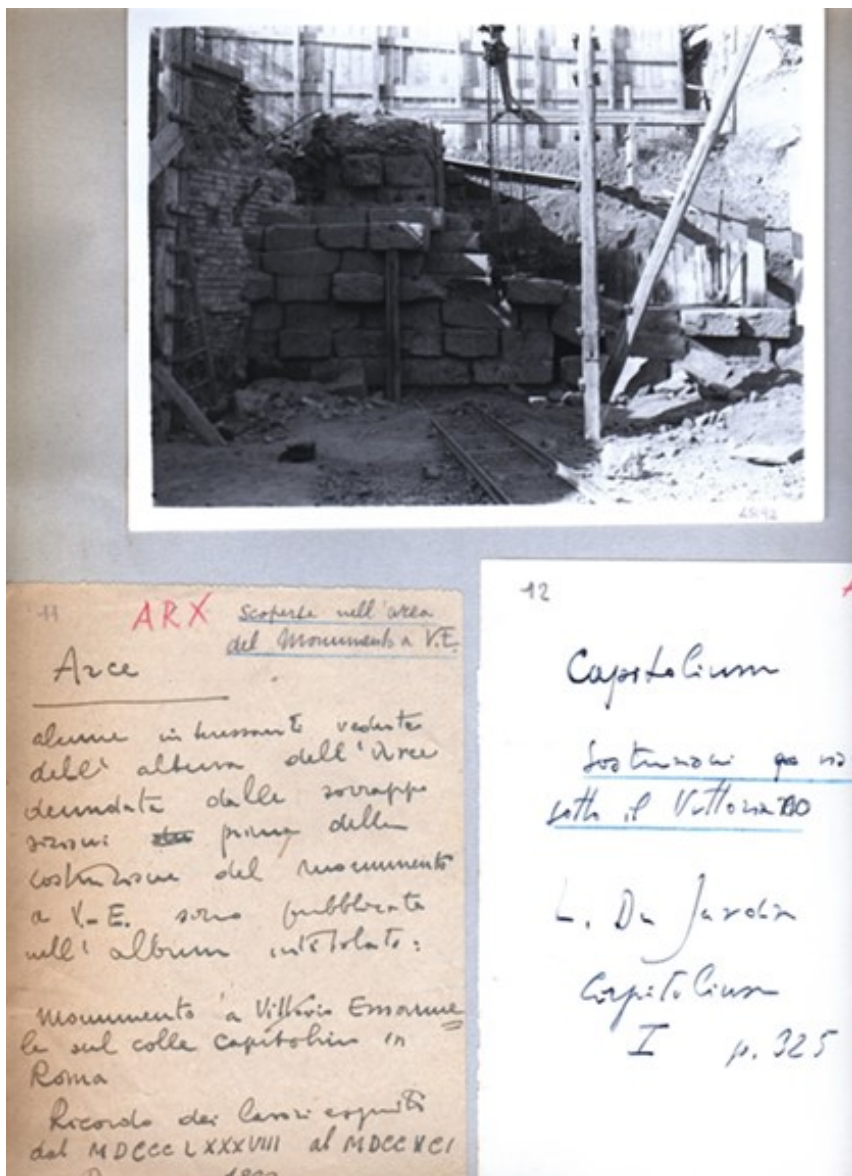 11
ARX
Scoperte nell'area
del Monumento a V.E.
Arce
alcune interessanti vedute
dell' altura dell' Arce
denudata dalle sovrappo
sizioni prima della
costruzione del monumento
a V.-E. sono pubblicate
nell' album intitolato:
Monumento a Vittorio Emanue
le sul colle Capitolino in
Roma
Ricordo dei lavori eseguiti
dal MDCCCLXXXVIII al MDCCXCI
12
Capitolium
Sostruzioni
sotto il Vittoriano
L. Du Jardin
Capitolium
I p. 325